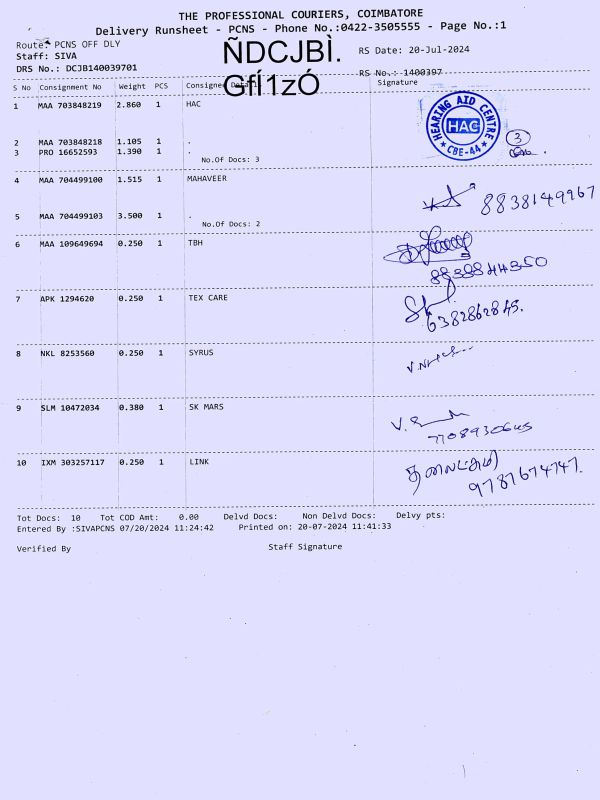 THE PROFESSIONAL COURIERS, COIMBATORE
Delivery Runsheet - PCNS - Phone No.:0422-3505555 - Page No.:1
Route: PCNS OFF DLY
ÑDCJBÌ.
RS Date: 20-Jul-2024
Staff: SIVA
DRS No.: DCJB140039701
GfÍ1zÓ
RS No.: 1400397
S No Consignment No Weight PCS Consignee Details Signature
1 MAA 703848219 2.860 1 HAC
HEARING AID CENTRE
HAC
CBE-44
2 MAA 703848218 1.105 1 .
3
3 PRO 16652593 1.390 1 .
No.Of Docs: 3
4 MAA 704499100 1.515 1 MAHAVEER
8838149967
5 MAA 704499103 3.500 1 .
No.Of Docs: 2
6 MAA 109649694 0.250 1 TBH
8838844350
7 APK 1294620 0.250 1 TEX CARE
6382862845.
8 NKL 8253560 0.250 1 SYRUS
9 SLM 10472034 0.380 1 SK MARS
7708930645
10 IXM 303257117 0.250 1 LINK
9787674747.
Tot Docs: 10 Tot COD Amt: 0.00 Delvd Docs: Non Delvd Docs: Delvy pts:
Entered By :SIVAPCNS 07/20/2024 11:24:42 Printed on: 20-07-2024 11:41:33
Verified By Staff Signature